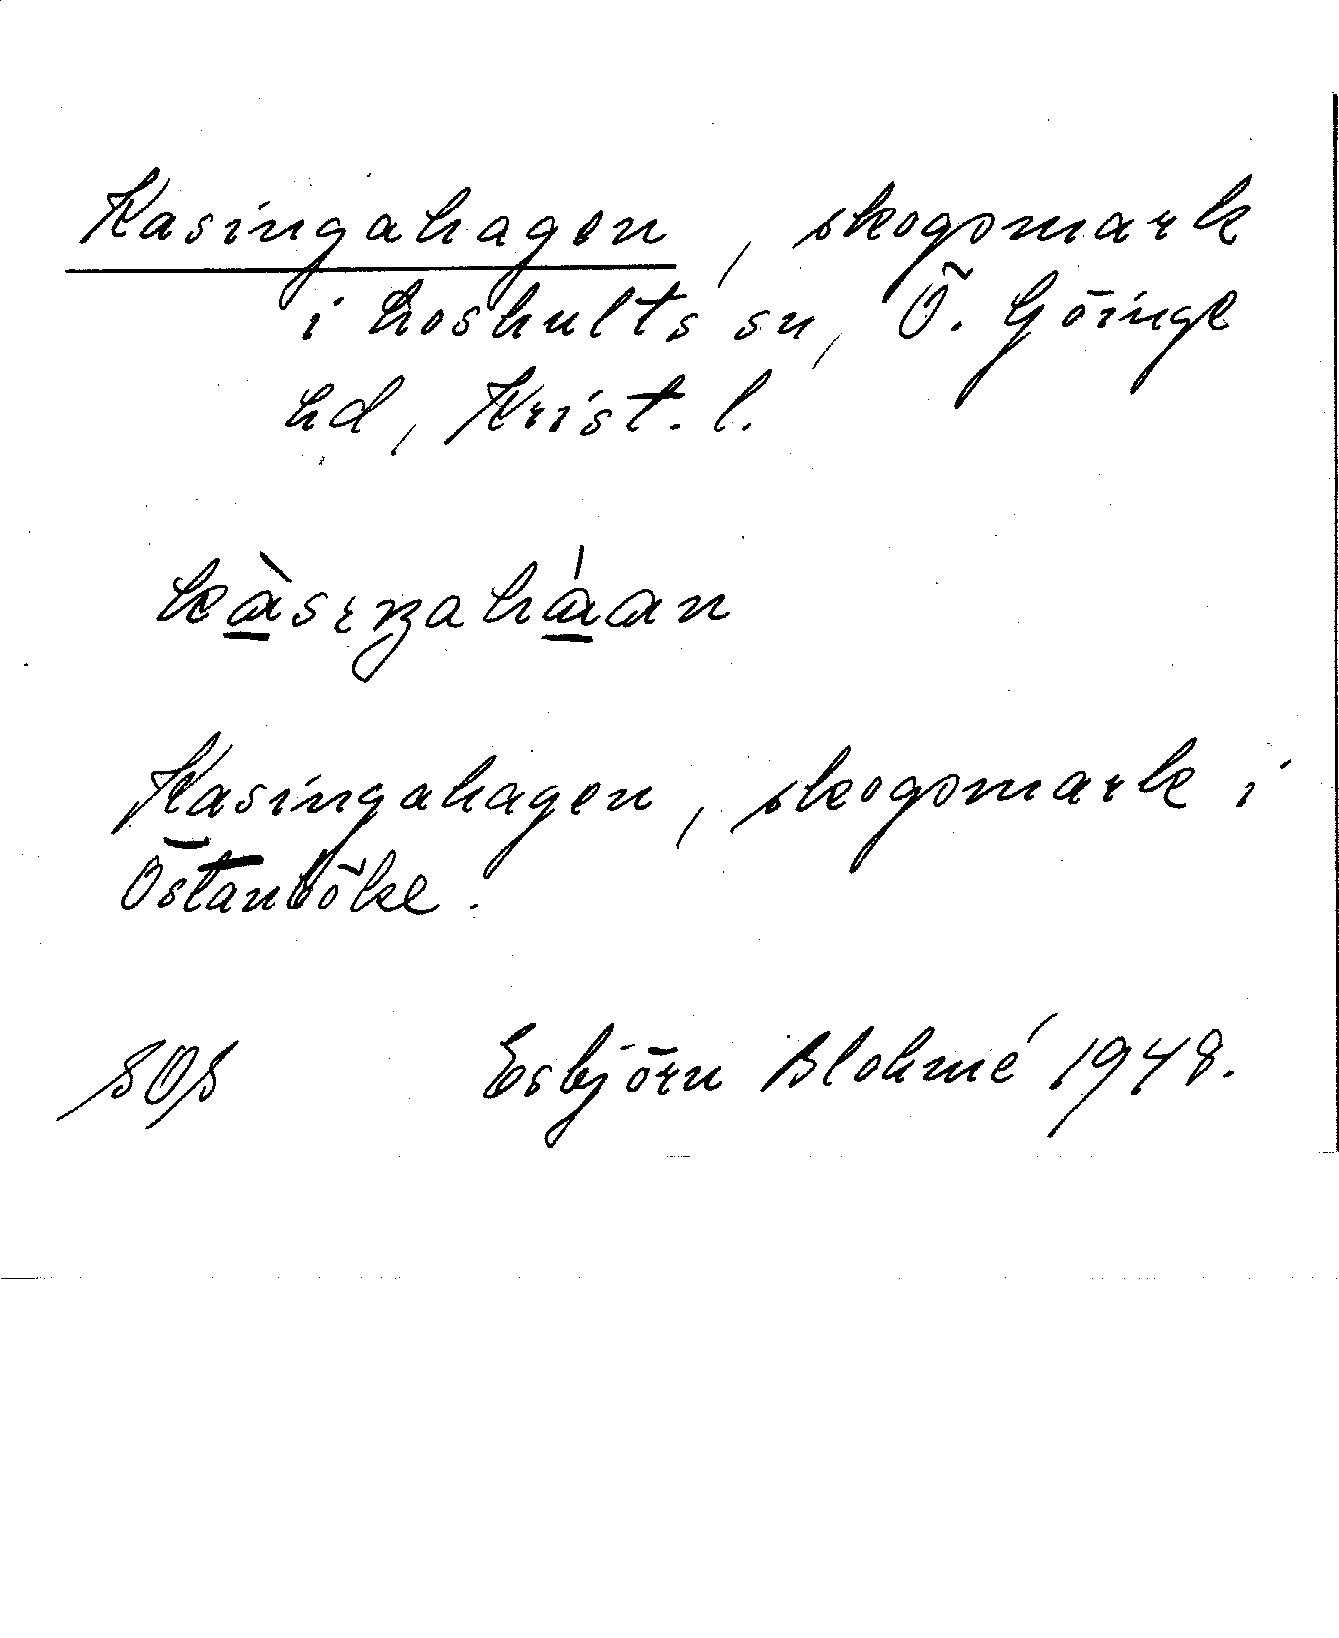 Kasingahagen, skogsmark
i Loshults sn, Ö. Göinge
hd, Krist. l.
Kasingahagen, skogsmark i
Östanböke.
SOS Esbjörn Blohmé 1948.